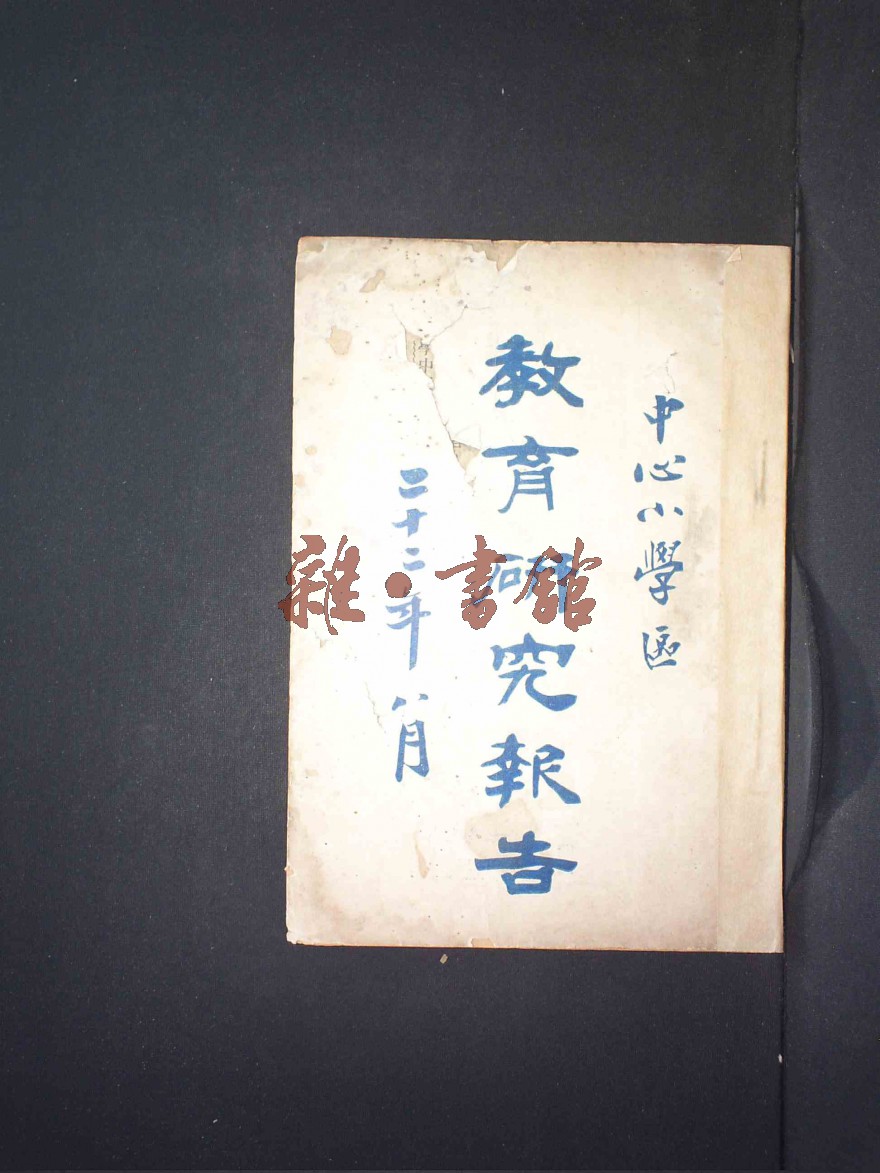 中心小學區
教育研究報告
二十二年八月
雜·書館